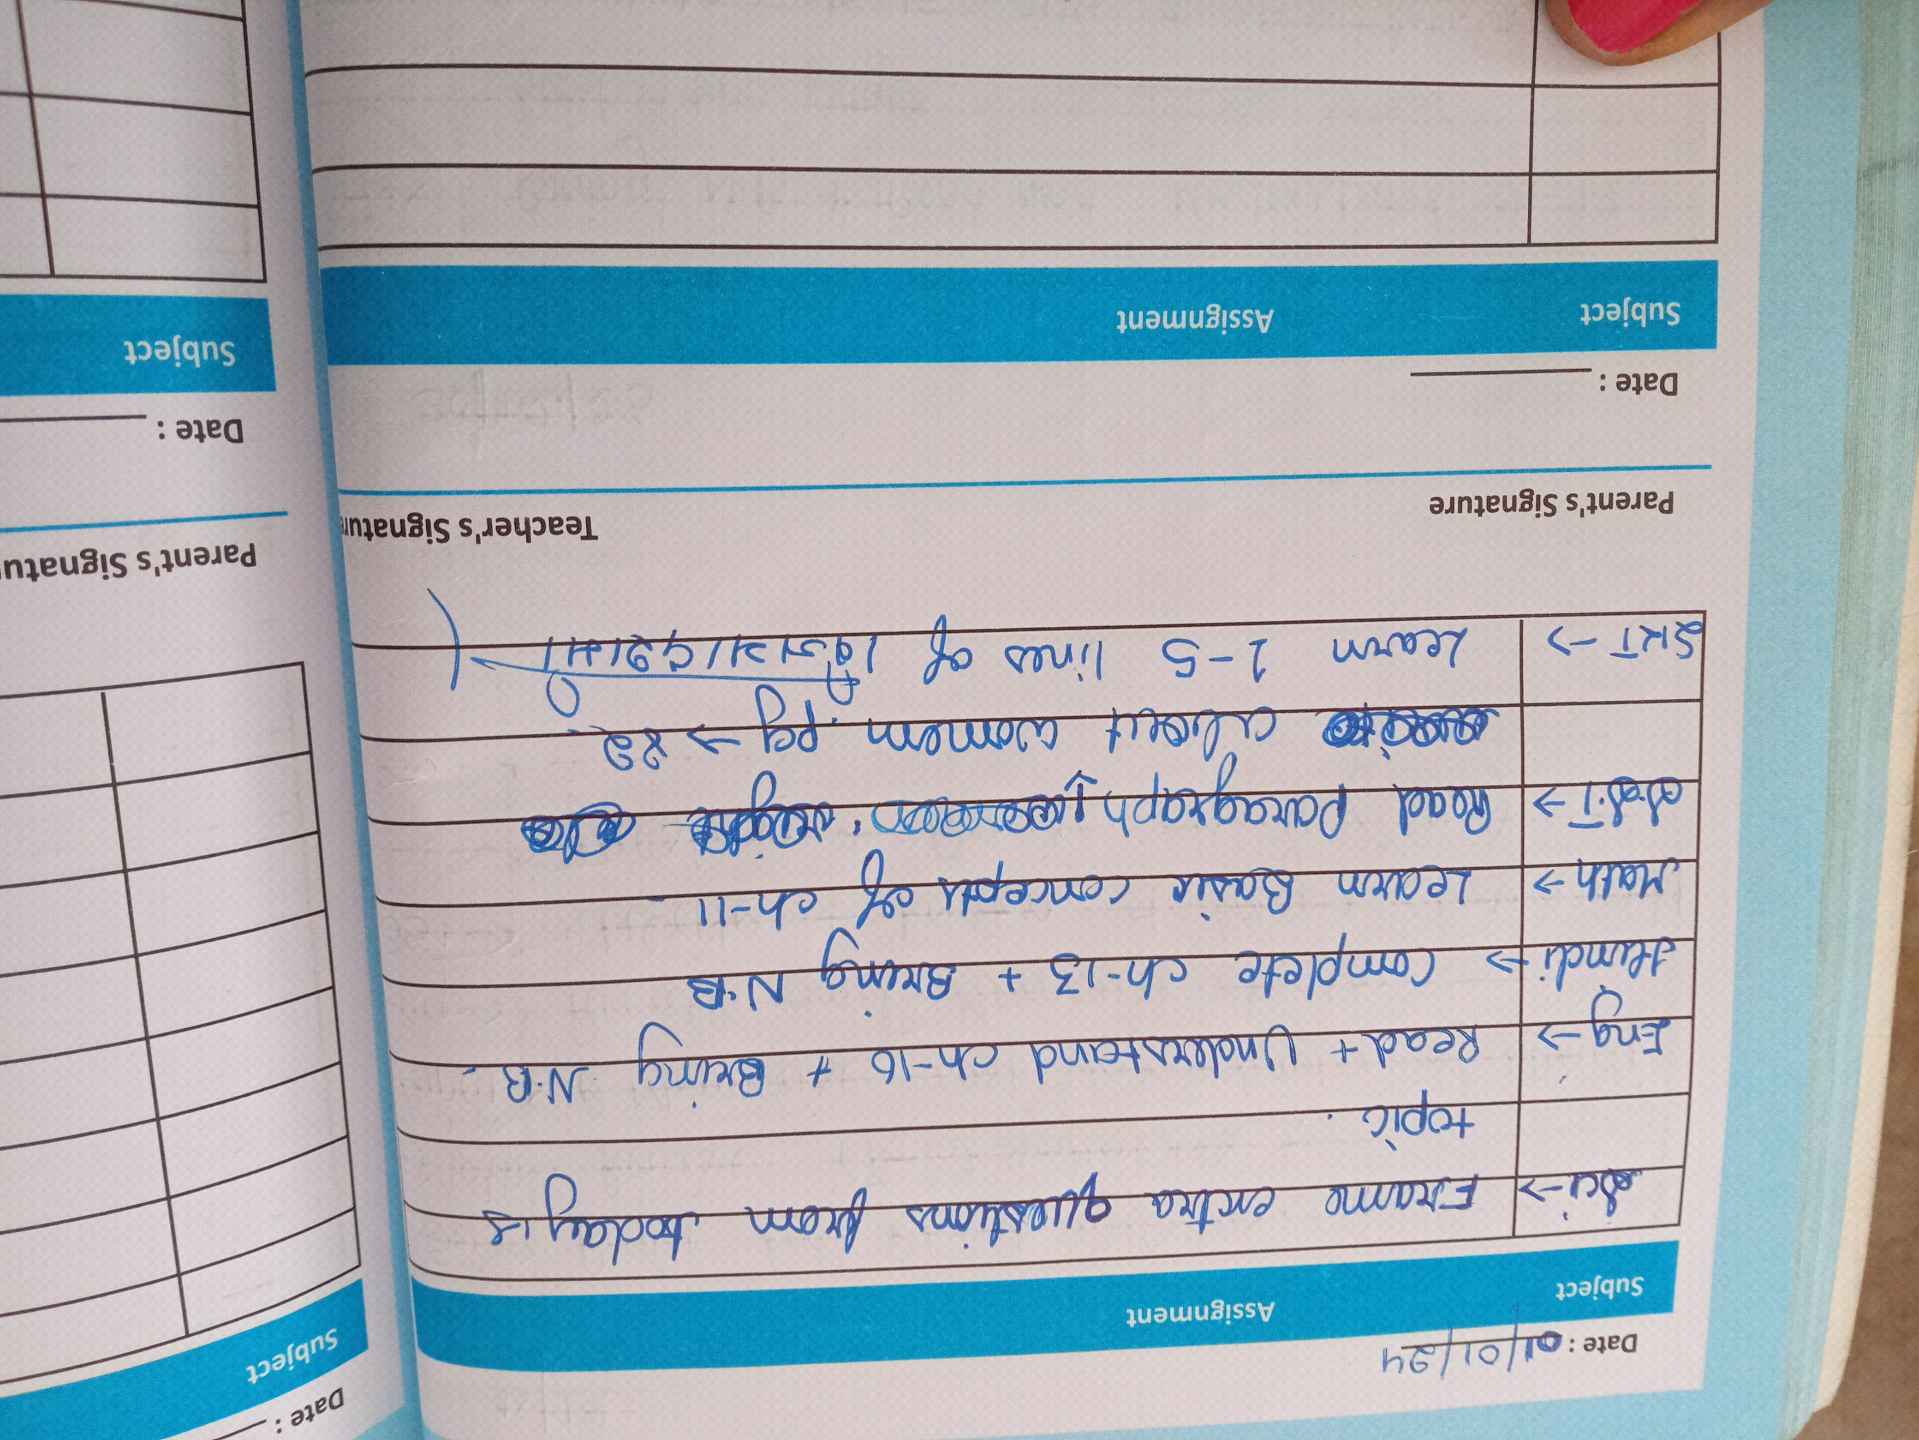 Date : 01/01/24
Subject Assignment
Sci → Frame extra questions from today's
topic.
Eng → Read + Understand ch-16 + Bring N.B.
Hindi → Complete ch-13 + Bring N.B
Math → Learn Basic concepts of ch-11
S.S.T → Read Paragraph
about women. pg → 82
SKT → Learn 1-5 lines of
Parent's Signature Teacher's Signatur
Date :
Subject Assignment
Date :
Subject
Parent's Signatu
Date :
Subject